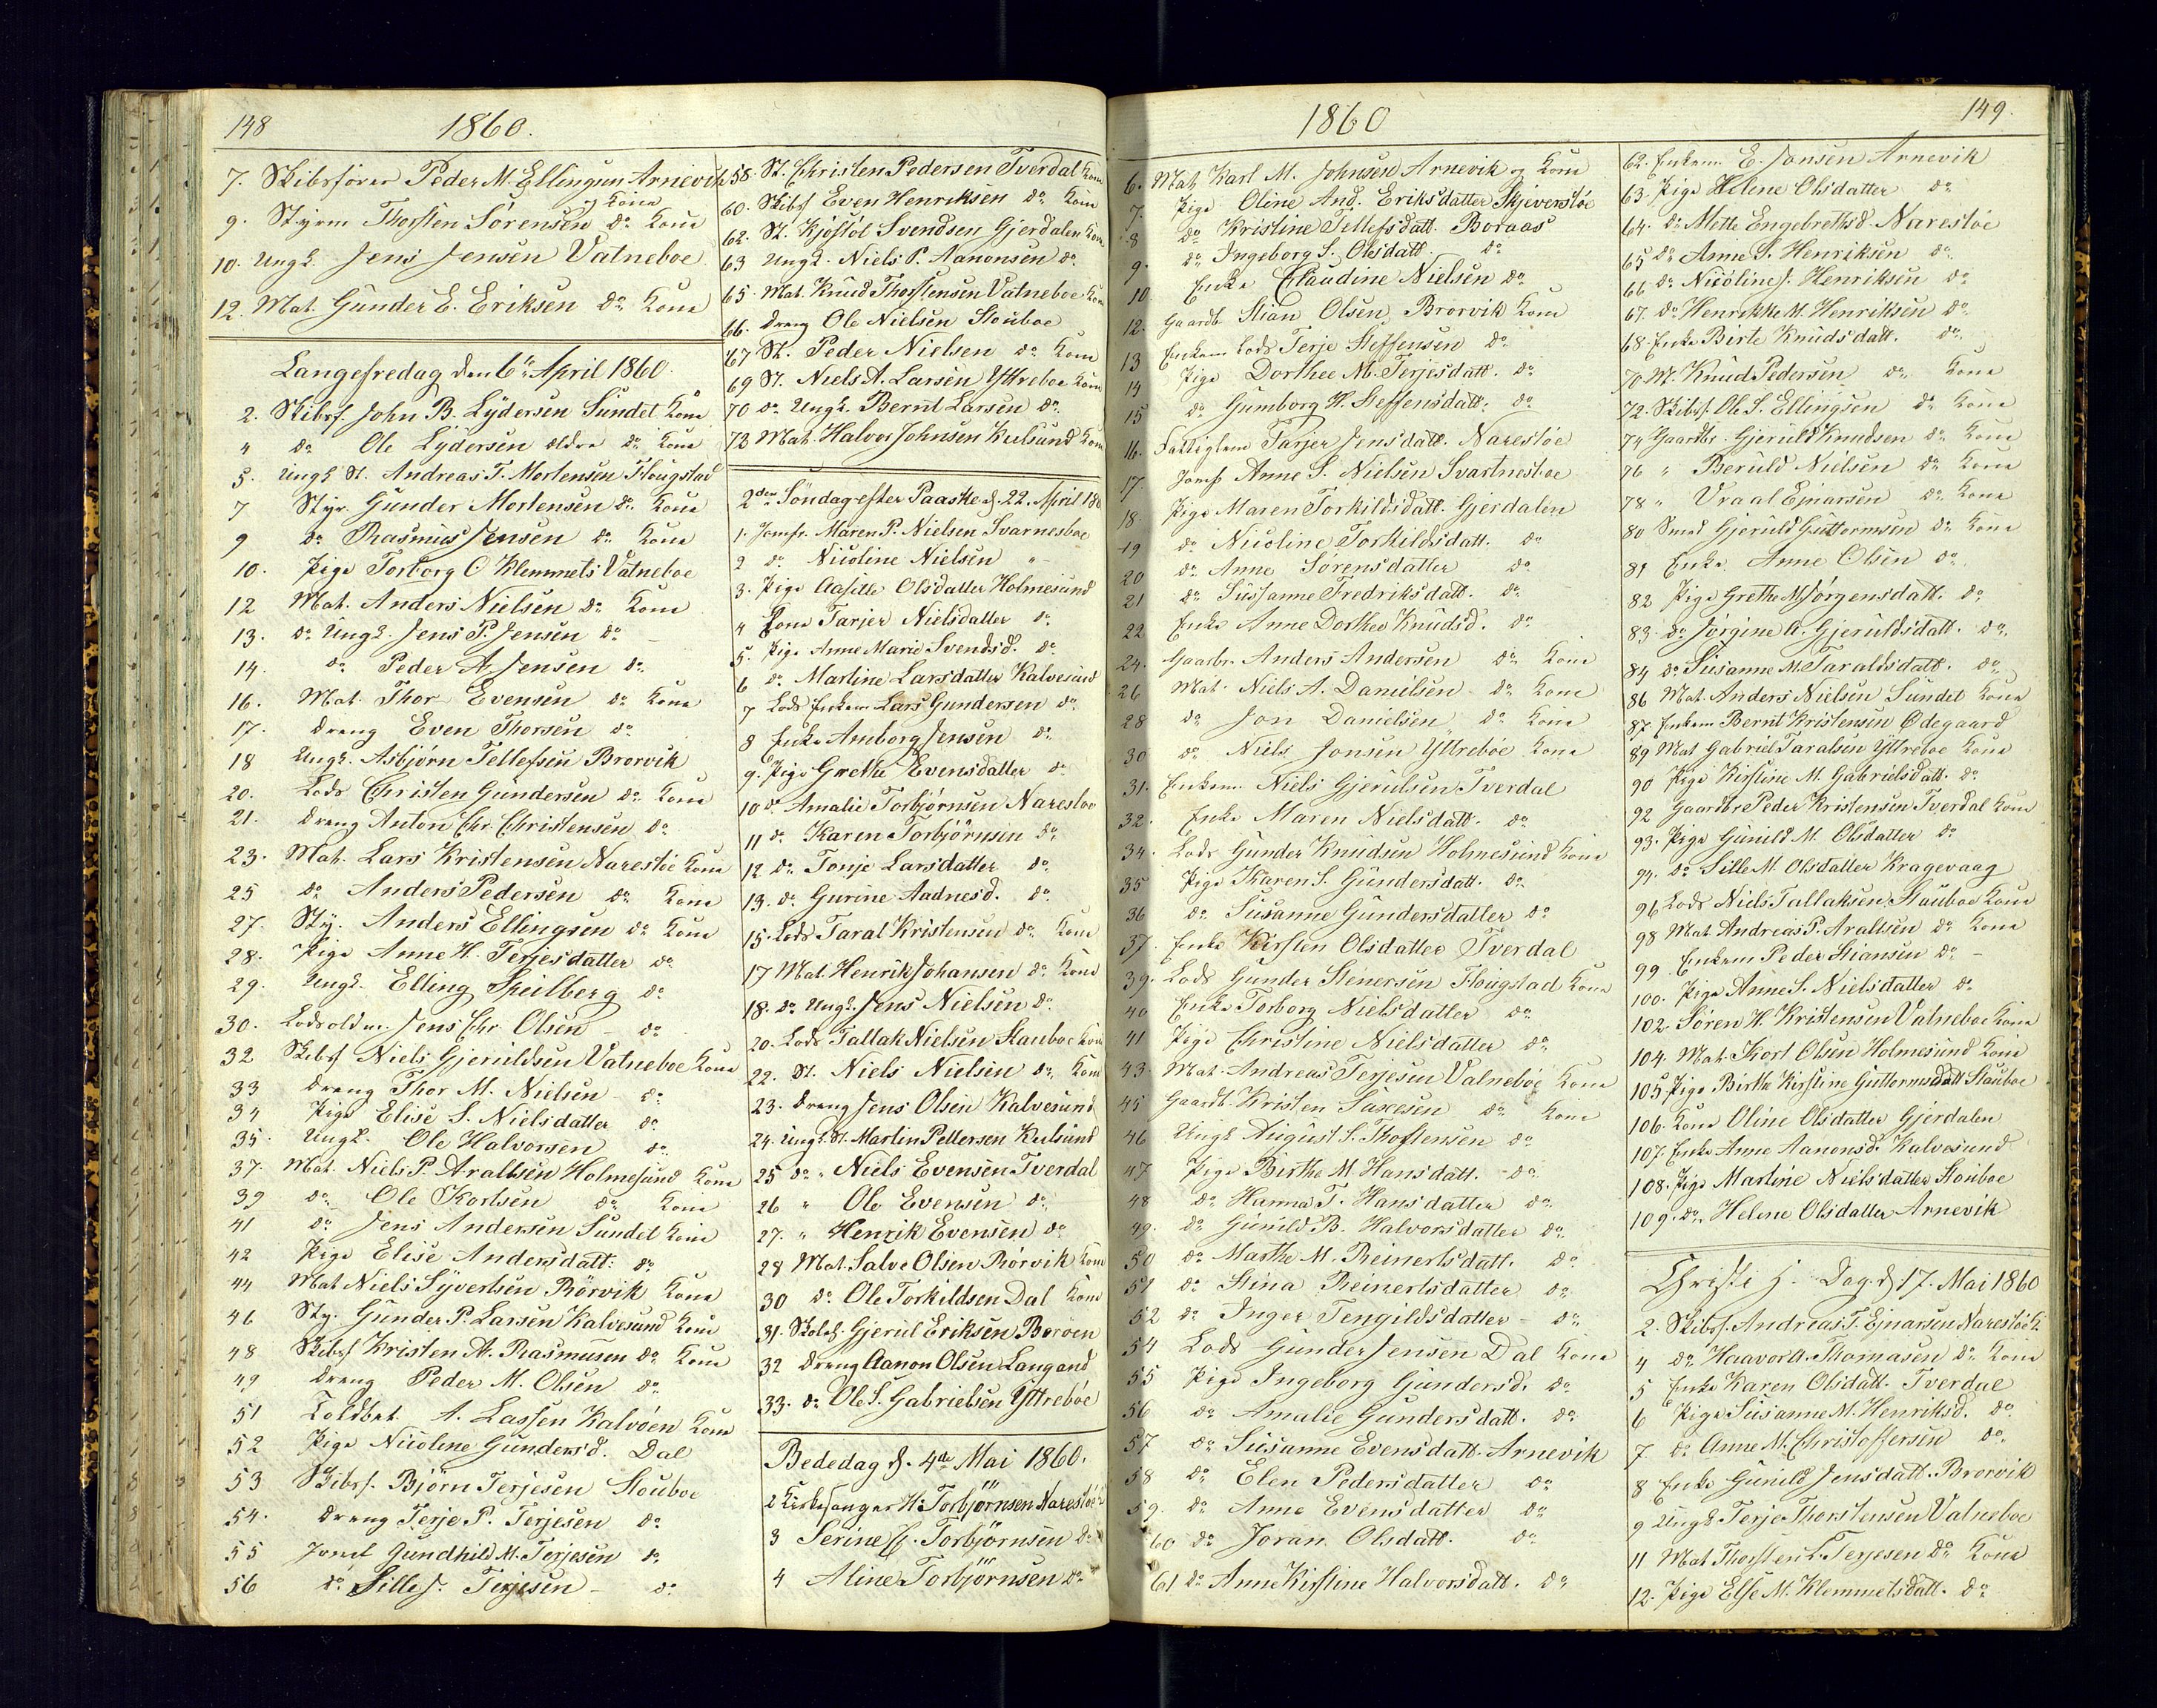 148
1860.
7. Skibsfører Peder M. Ellingsen Arnevik
og Kone
9. Styrm Thorsten Sørensen do Kone
10. Ungk. Jens Jensen Vatneboe
12. Mat. Gunder E. Eriksen do Kone
Langefredag den 6te April 1860.
2. Skibsf. John B. Lydersen Sundet Kone
" do Ole Lydersen ældre do Kone
5. Ungk St. Andreas T. Mortensen Flougstad
7 Styr. Gunder Mortensen do Kone
9 do Rasmus Jensen do Kone
10. Pige Torborg O Klemmets Vatneboe
12 Mat. Anders Nielsen do Kone
13. do Ungk. Jens P. Jensen do
14. do Peder A. Jensen do
16. Mat. Thor Evensen do Kone
17. Dreng Even Thorsen do
18 Ungk. Asbjørn Tellefsen Brorvik
20. Lods Christen Gundersen do Kone
21. Dreng Anton Chr. Christensen do
23. Mat. Lars Kristensen Narestöe Kone
25 do Anders Pedersen do Kone
27. Sty. Anders Ellingsen do Kone
28. Pige Anne H. Terjesdatter do
29. Ungk. Elling Speilberg do
30. Lodsoldm. Jens Chr. Olsen do
32 Skibsf Niels Gjeruldsen Vatneboe Kone
33 Dreng Thor M. Nielsen do
34 Pige Elise S. Nielsdatter do
35. Ungk. Ole Halvorsen do
37. Mat. Niels P. Araltsen Holmesund Kone
39 do Ole Kortsen do Kone
41 do Jens Andersen Sundet Kone
42 Pige Elise Andersdatt: do
44 Mat Niels Syvertsen Rörvik Kone
46 Sty. Gunder P. Larsen Kalvesund Kone
48 Skibsf Kristen A. Rasmusen do Kone
49 Dreng Peder M. Olsen do
51 Toldbet A. Lassen Kalvöen Kone
52 Pige Nicoline Gundersd. Dal
53 Skibsf. Björn Terjesen Stouboe
54. Dreng Terje P. Terjesen do
55 Jomf Gundhild M. Terjesen do
56 do Sille J. Terjesen do
58. St. Christen Pedersen Tverdal Kone
60. Skibsf Even Henriksen do Kone
62. St. Kjöstöl Svendsen Gjerdalen Kone
63 Ungk. Niels P. Aanonsen do
65. Mat. Knud Thorstensen Vatneboe Kone
66. Dreng Ole Nielsen Stouboe
67 St. Peder Nielsen do Kone
69 St. Niels A. Larsen Yttreboe Kone
70 do Ungk. Bernt Larsen do
73 Mat. Halvor Johnsen Kulsund Kone
2den Söndag efter Paaske d. 22. April 186
1. Jomfr. Maren P. Nielsen Svarnesboe
2 do Nicoline Nielsen "
3. Pige Aasille Olsdatter Holmesund
4 Kone Tarjer Nielsdatter do
5. Pige Anne Marie Svendsd. do
6 do Martine Larsdatter Kalvesund
7 Lods Enkem Lars Gundersen do
8 Enke Amborg Jensen do
9. Pige Grethe Evensdatter do
10 do Amalie Torbjørnsen Narestoe
11 do Karen Torbjörnsen do
12 do Tonje Larsdatter do
13. do Gurine Aadnesd. do
15. Lods Taral Kristensen do Kone
17 Mat. Henrik Johansen do Kone
18. do Ungk. Jens Nielsen do
20. Lods Tallak Nielsen Stauboe Kone
22. St. Niels Nielsen do Kone
23. Dreng Jens Olsen Kalvesund
24. Ungk. St. Martin Pettersen Kulsund
25 do " Niels Evensen Tverdal
26 " Ole Evensen do
27. " Henrik Evensen do
28 Mat. Salve Olsen Rörvik Kone
30 do Ole Torkildsen Dal Kone
31. Skolel. Gjerul Eriksen Boröen
32 Dreng Aanon Olsen Langand
33. do Ole S. Gabrielsen Yttreböe
Bededag d. 4de Mai 1860.
2 Kirkesanger H. Torbjörnsen Narestöe
3 Serine C. Torbjörnsen do
4 Aline Torbjörnsen do
1860
149.
6. Mat Karl M. Johnsen Arnevik og Kone
7. Pige Oline And. Eriksdatter Skjeverstöe
8 do Kristine Tellefsdatt. Boraas
9. do Ingeborg S. Olsdatt. do
10. Enke Claudine Nielsen do
12. Gaardb. Stian Olsen Brorvik Kone
13 Enkem Lods Terje Steffensen do
14 Pige Dorthee M. Terjesdatt. do
15 do Gumborg H. Steffensdatt. do
16. Fattiglem Tarjer Jensdatt. Narestöe
17. Jomf Anne S. Nielsen Svartnesboe
18. Pige Maren Torkildsdatt. Gjerdalen
19 do Nicoline Torkildsdatt. do
20 do Anne Sörensdatter do
21 do Sussanne Fredriksdatt. do
22 Enke Anne Dorthea Knudsd. do
24. Gaardbr. Anders Andersen do Kone
26 Mat. Niels A. Danielsen do Kone
28 do Jon Danielsen do Kone
30 do Niels Jonsen Yttreböe Kone
31. Enkem. Niels Gjerulsen Tverdal
32. Enke Maren Nielsdatt. do
34. Lods Gunder Knudsen Holmesund Kone
35 Pige Karen S. Gundersdatt. do
36 do Susanne Gundersdatter do
37. Enke Kirsten Olsdatter Tverdal
39. Lods Gunder Stenersen Flougstad Kone
40 Enke Torborg Nielsdatter do
41 Pige Christine Nielsdatter do
43. Mat. Andreas Terjesen Vatneböe Kone
45 Gaardb. Kristen Saxesen do Kone
46 Ungk August S. Thostensen do
47 Pige Birthe M. Hansdatt. do
48 do Hanna T. Hansdatter do
49. do Gunild B. Halvorsdatter do
50 do Marthe M. Reinertsdatt. do
51 do Stina Reinertsdatter do
52 do Inger Tengildsdatter do
54 Lods Gunder Jensen Dal Kone
55 Pige Ingeborg Gundersd. do
56 do Amalie Gundersdatt. do
57 do Susanne Evensdatt. Arnevik
58 do Elen Pedersdatter do
59. do Anne Evensdatter do
60 do Joran Olsdatt. do
61 do Anne Kirstine Halvorsdatt. do
62. Enkem. E. Jonsen Arnevik
63. Pige Helene Olsdatter do
64. do Mette Engebrethsd. Narestöe
65 do Anne S. Henriksen do
66 do Nicoline J. Henriksen do
67. do Henrikke M. Henriksen do
68. Enke Birte Knudsdatt. do
70 M. Knud Pedersen do Kone
72. Skibsf. Ole S. Ellingsen do Kone
74 Gaardbr. Gjeruld Knudsen do Kone
76 " Beruld Nielsen do Kone
78 " Vraal Ejnarsen do Kone
80 Smed Gjeruld Guttormsen do Kone
81 Enke Anne Olsen do
82 Pige Grethe M Jörgensdatt. do
83. do Jörgine A. Gjeruldsdatt. do
84 do Susanne M. Taraldsdatt. do
86 Mat. Anders Nielsen Sundet Kone
87. Enkem Bernt Kristensen Ödegaard
89 Mat Gabriel Taralsen Yttreboe Kone
90 Pige Kirstine M. Gabrielsdatt. do
92 Gaardbr Peder Kristensen Tverdal Kone
93. Pige Gunild M. Olsdatter do
94. do Sille M. Olsdatter Kragevaag
96 Lods Niels Tallaksen Stauboe Kone
98 Mat Andreas P. Araltsen do Kone
99. Enkem Peder Stiansen do
100. Pige Anne S. Nielsdatter do
102. Sören H. Kristensen Vatneboe Kone
104. Mat. Kort Olsen Holmesund Kone
105 Pige Birthe Kirstine Guttormsdatt Stauboe
106. Kone Oline Olsdatter Gjerdalen
107. Enke Anne Aanonsd. Kalvesund
108. Pige Martine Nielsdatter Stouboe
109. do Helene Olsdatter Arnevik
Christi H. Dag. d. 17. Mai 1860
2. Skibsf. Andreas T. Ejnarsen Narestöe K.
4 do Haavor A. Thomasen do Kone
5 Enke Karen Olsdatt. Tverdal
6 Pige Susanne M. Henriksd. do
7 do Anne M. Christoffersen do
8 Enke Gunild Jensdatt. Brorvik
9 Ungk Terje Thorstensen Vatneboe
11 Mat Thorsten L. Terjesen do Kone
12. Pige Else M. Klemmetsdatt. do